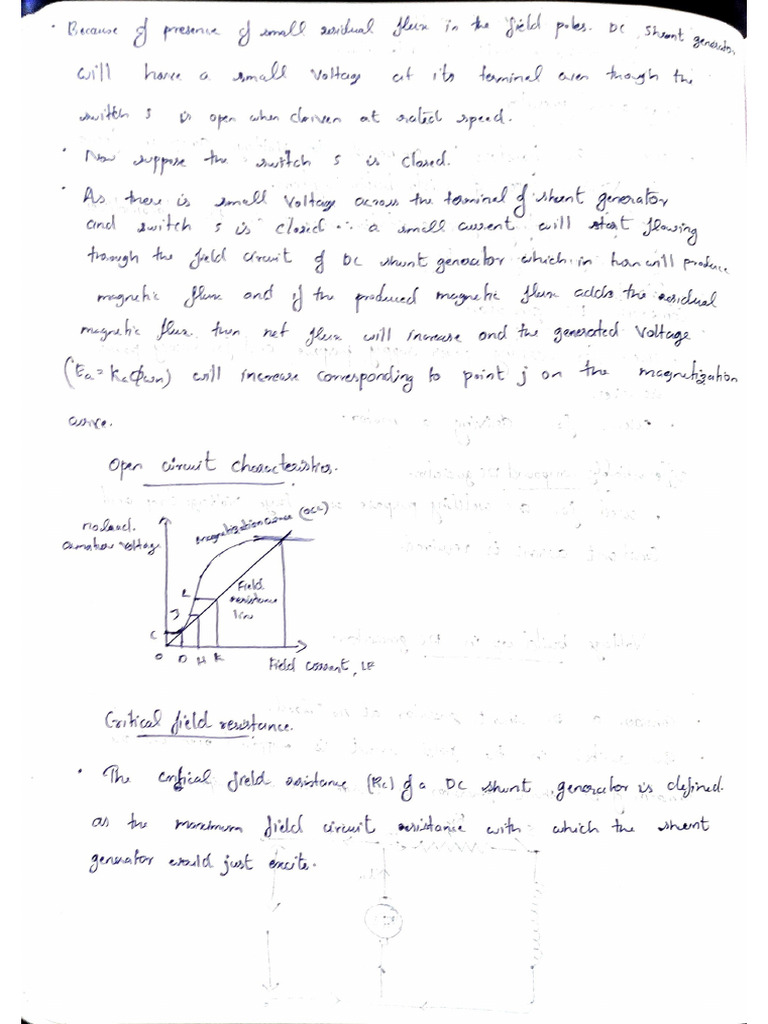 · Because of presence of small residual flux in the field poles. DC shunt generator
will have a small voltage at its terminal even though the
switch S is open when driven at rated speed.
· Now suppose the switch S is closed.
· As there is small voltage across the terminal of shunt generator
and switch S is closed ∴ a small current will start flowing
through the field circuit of DC shunt generator which in turn will produce
magnetic flux and if the produced magnetic flux adds the residual
magnetic flux then net flux will increase and the generated voltage
(Ea = Ka Φ ωm) will increase corresponding to point j on the magnetization
curve.
Open circuit characteristics.
no load.
armature voltage
magnetization curve (OCC)
Field
resistance
line
L
J
C
O D H K
Field current, IF
Critical field resistance.
· The critical field resistance (Rc) of a DC shunt generator is defined.
as the maximum field circuit resistance with which the shunt
generator would just excite.